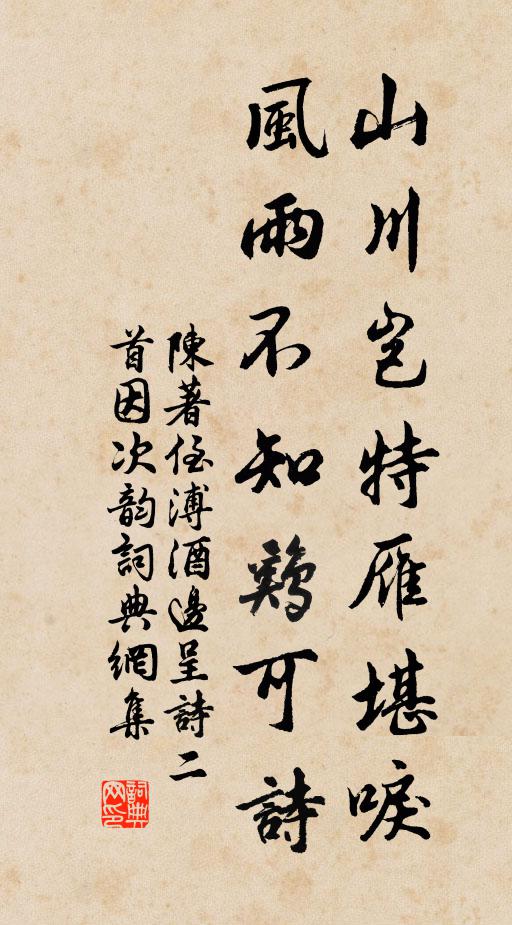 山川岂特雁堪唳
風雨不知鷄可詩
陳著侄溥酒邊呈詩二
首因次韵詞典網集
詞典网印